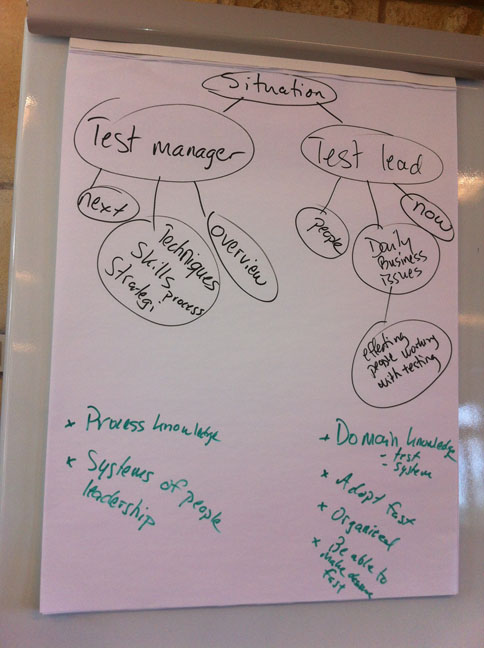 Situation
Test manager
Test lead
next
Techniques
Skills process
Strategi
overview
people
Daily
Business
issues
now
effecting
people working
with testing
* Process knowledge
* Systems of people
leadership
* Domain knowledge
- test
- system
* Adopt fast
* Organised
* Be able to
make
fast